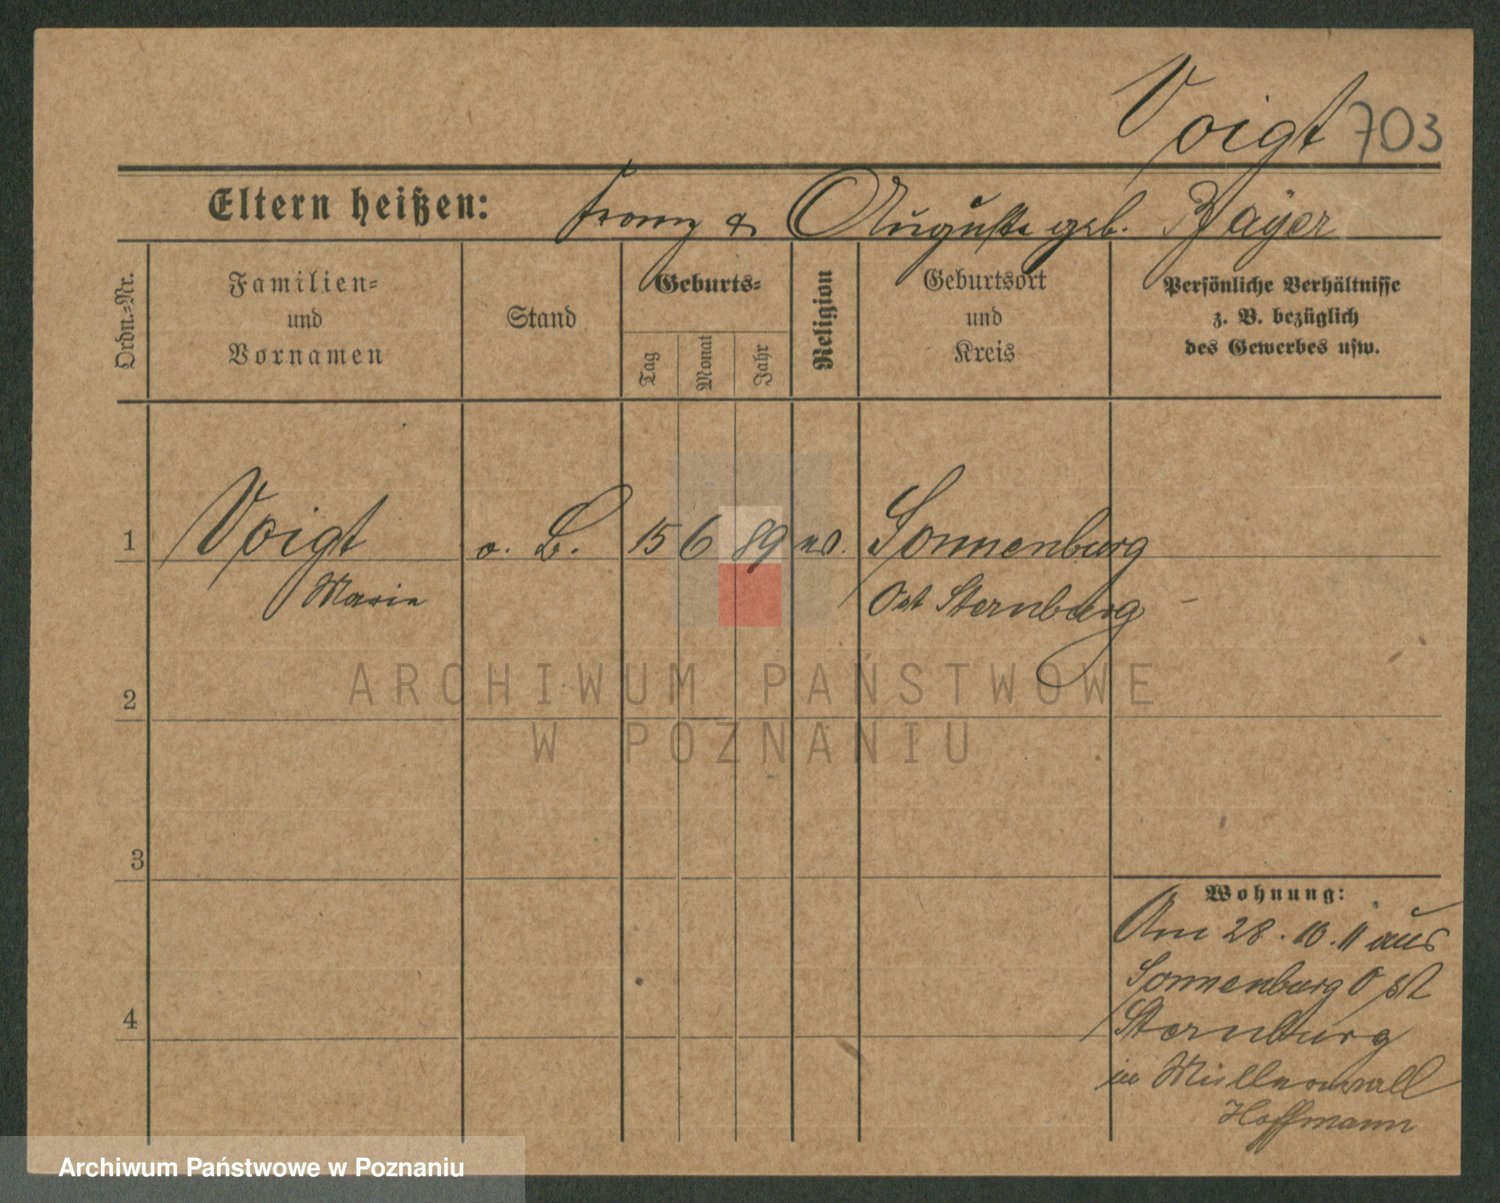 Voigt 703
Eltern heißen: Franz & Auguste geb. Bayer
Ordn.-Nr.
Familien-
und
Vornamen
Stand
Geburts-
Tag
Monat
Jahr
Religion
Geburtsort
und
Kreis
Persönliche Verhältnisse
z. B. bezüglich
des Gewerbes usw.
1 Voigt o. B. 15 6 89 ev. Sonnenburg
Marie Ost Sternburg
ARCHIWUM PAŃSTWOWE
W POZNANIU
2
3
4
Wohnung:
Am 28.10.11 aus
Sonnenburg Ost
Sternburg
in
Hoffmann
Archiwum Państwowe w Poznaniu